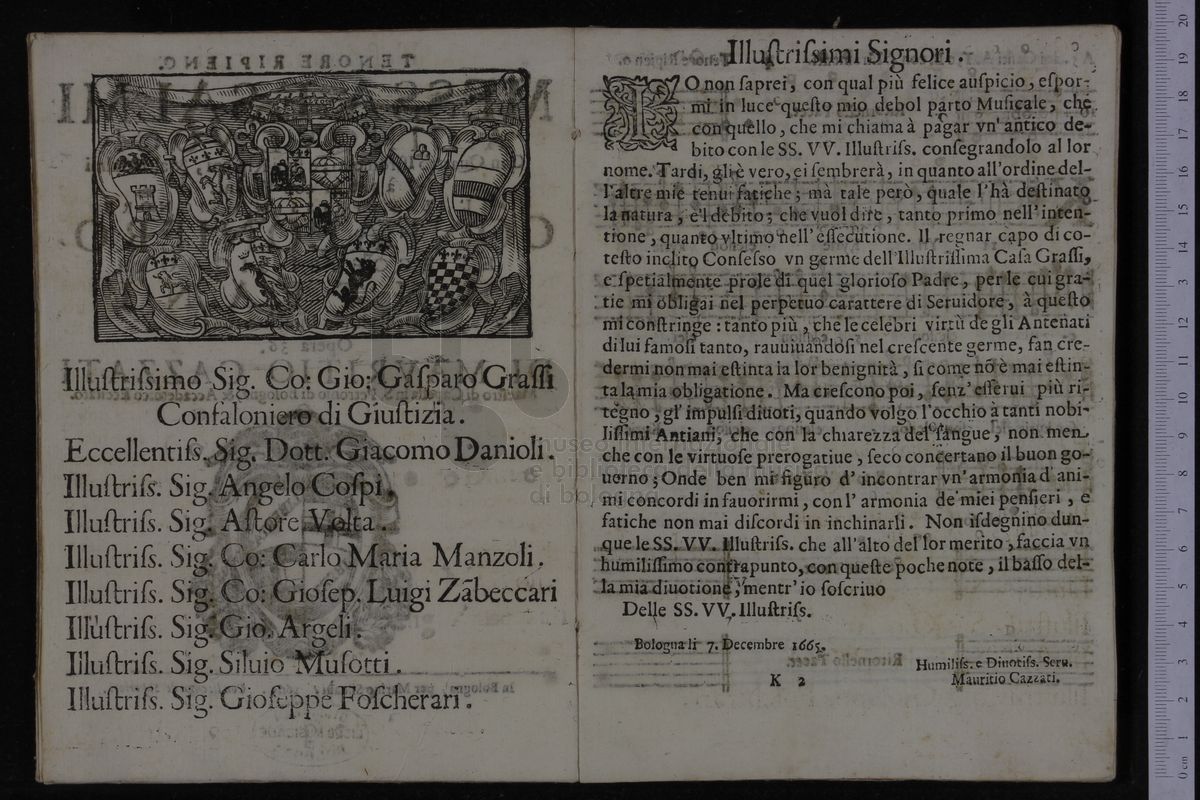 Illuſtriſsimo Sig. Co: Gio: Gaſparo Graſſi
Confaloniero di Giuſtizia.
Eccellentiſs. Sig. Dott. Giacomo Danioli.
Illuſtriſs. Sig. Angelo Coſpi.
Illuſtriſs. Sig. Aſtore Volta.
Illuſtriſs. Sig. Co: Carlo Maria Manzoli.
Illuſtriſs. Sig. Co: Gioſep. Luigi Zãbeccari
Illuſtriſs. Sig. Gio. Argeli.
Illuſtriſs. Sig. Siluio Muſotti.
Illuſtriſs. Sig. Gioſeppe Foſcherari.
Illuſtriſsimi Signori.
IO non ſaprei, con qual più felice auſpicio, eſpor-
mi in luce queſto mio debol parto Muſicale, che
con quello, che mi chiama à pagar vn' antico de-
bito con le SS. VV. Illuſtriſs. conſegrandolo al lor
nome. Tardi, gli è vero, ei ſembrerà, in quanto all'ordine del-
l'altre mie tenui fatiche; mà tale però, quale l'hà deſtinato
la natura, e'l debito; che vuol dire, tanto primo nell'inten-
tione, quanto vltimo nell'eſſecutione. Il regnar capo di co-
teſto inclito Conſeſſo vn germe dell'Illuſtriſſima Caſa Graſſi,
e ſpetialmente prole di quel glorioſo Padre, per le cui gra-
tie mi obligai nel perpetuo carattere di Seruidore, à queſto
mi conſtringe: tanto più, che le celebri virtù de gli Antenati
di lui famoſi tanto, rauuiuandoſi nel creſcente germe, fan cre-
dermi non mai eſtinta la lor benignità, ſi come nõ è mai eſtin-
ta la mia obligatione. Ma creſcono poi, ſenz'eſſerui più ri-
tegno, gl' impulſi diuoti, quando volgo l'occhio à tanti nobi-
liſſimi Antiani, che con la chiarezza del ſangue, non men
che con le virtuoſe prerogatiue, ſeco concertano il buon go-
uerno; Onde ben mi figuro d' incontrar vn'armonia d'ani-
mi concordi in fauorirmi, con l' armonia de' miei penſieri, e
fatiche non mai diſcordi in inchinarli. Non iſdegnino dun-
que le SS. VV. Illuſtriſs. che all'alto del lor merito, faccia vn
humiliſſimo contrapunto, con queſte poche note, il baſſo del-
la mia diuotione, mentr' io ſoſcriuo
Delle SS. VV. Illuſtriſs.
Bologna li 7. Decembre 1665.
Humiliſs. e Diuotiſs. Seru.
K 2
Mauritio Cazzati.